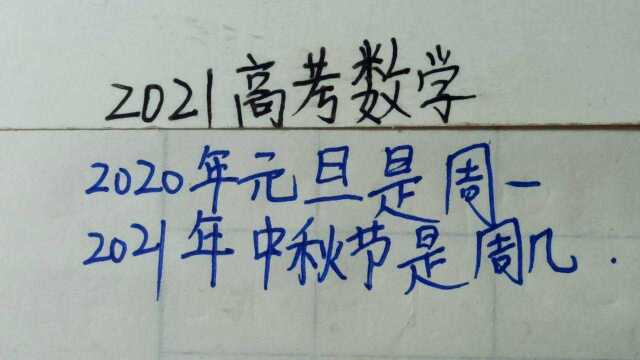 2021高考数学
2020年元旦是周一
2021年中秋节是周几.